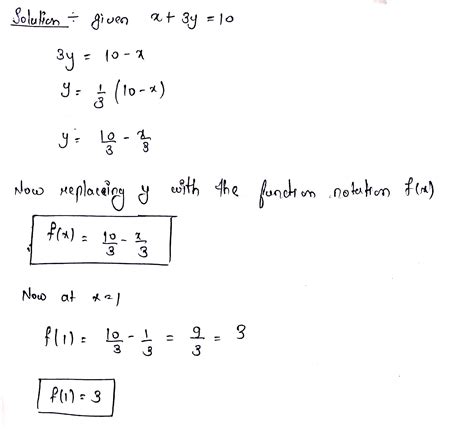 Solution ÷ given x + 3y = 10
3y = 10 - x
y = 1/3 (10 - x)
y = 10/3 - x/3
Now replacing y with the function notation f(x)
f(x) = 10/3 - x/3
Now at x=1
f(1) = 10/3 - 1/3 = 9/3 = 3
f(1) = 3